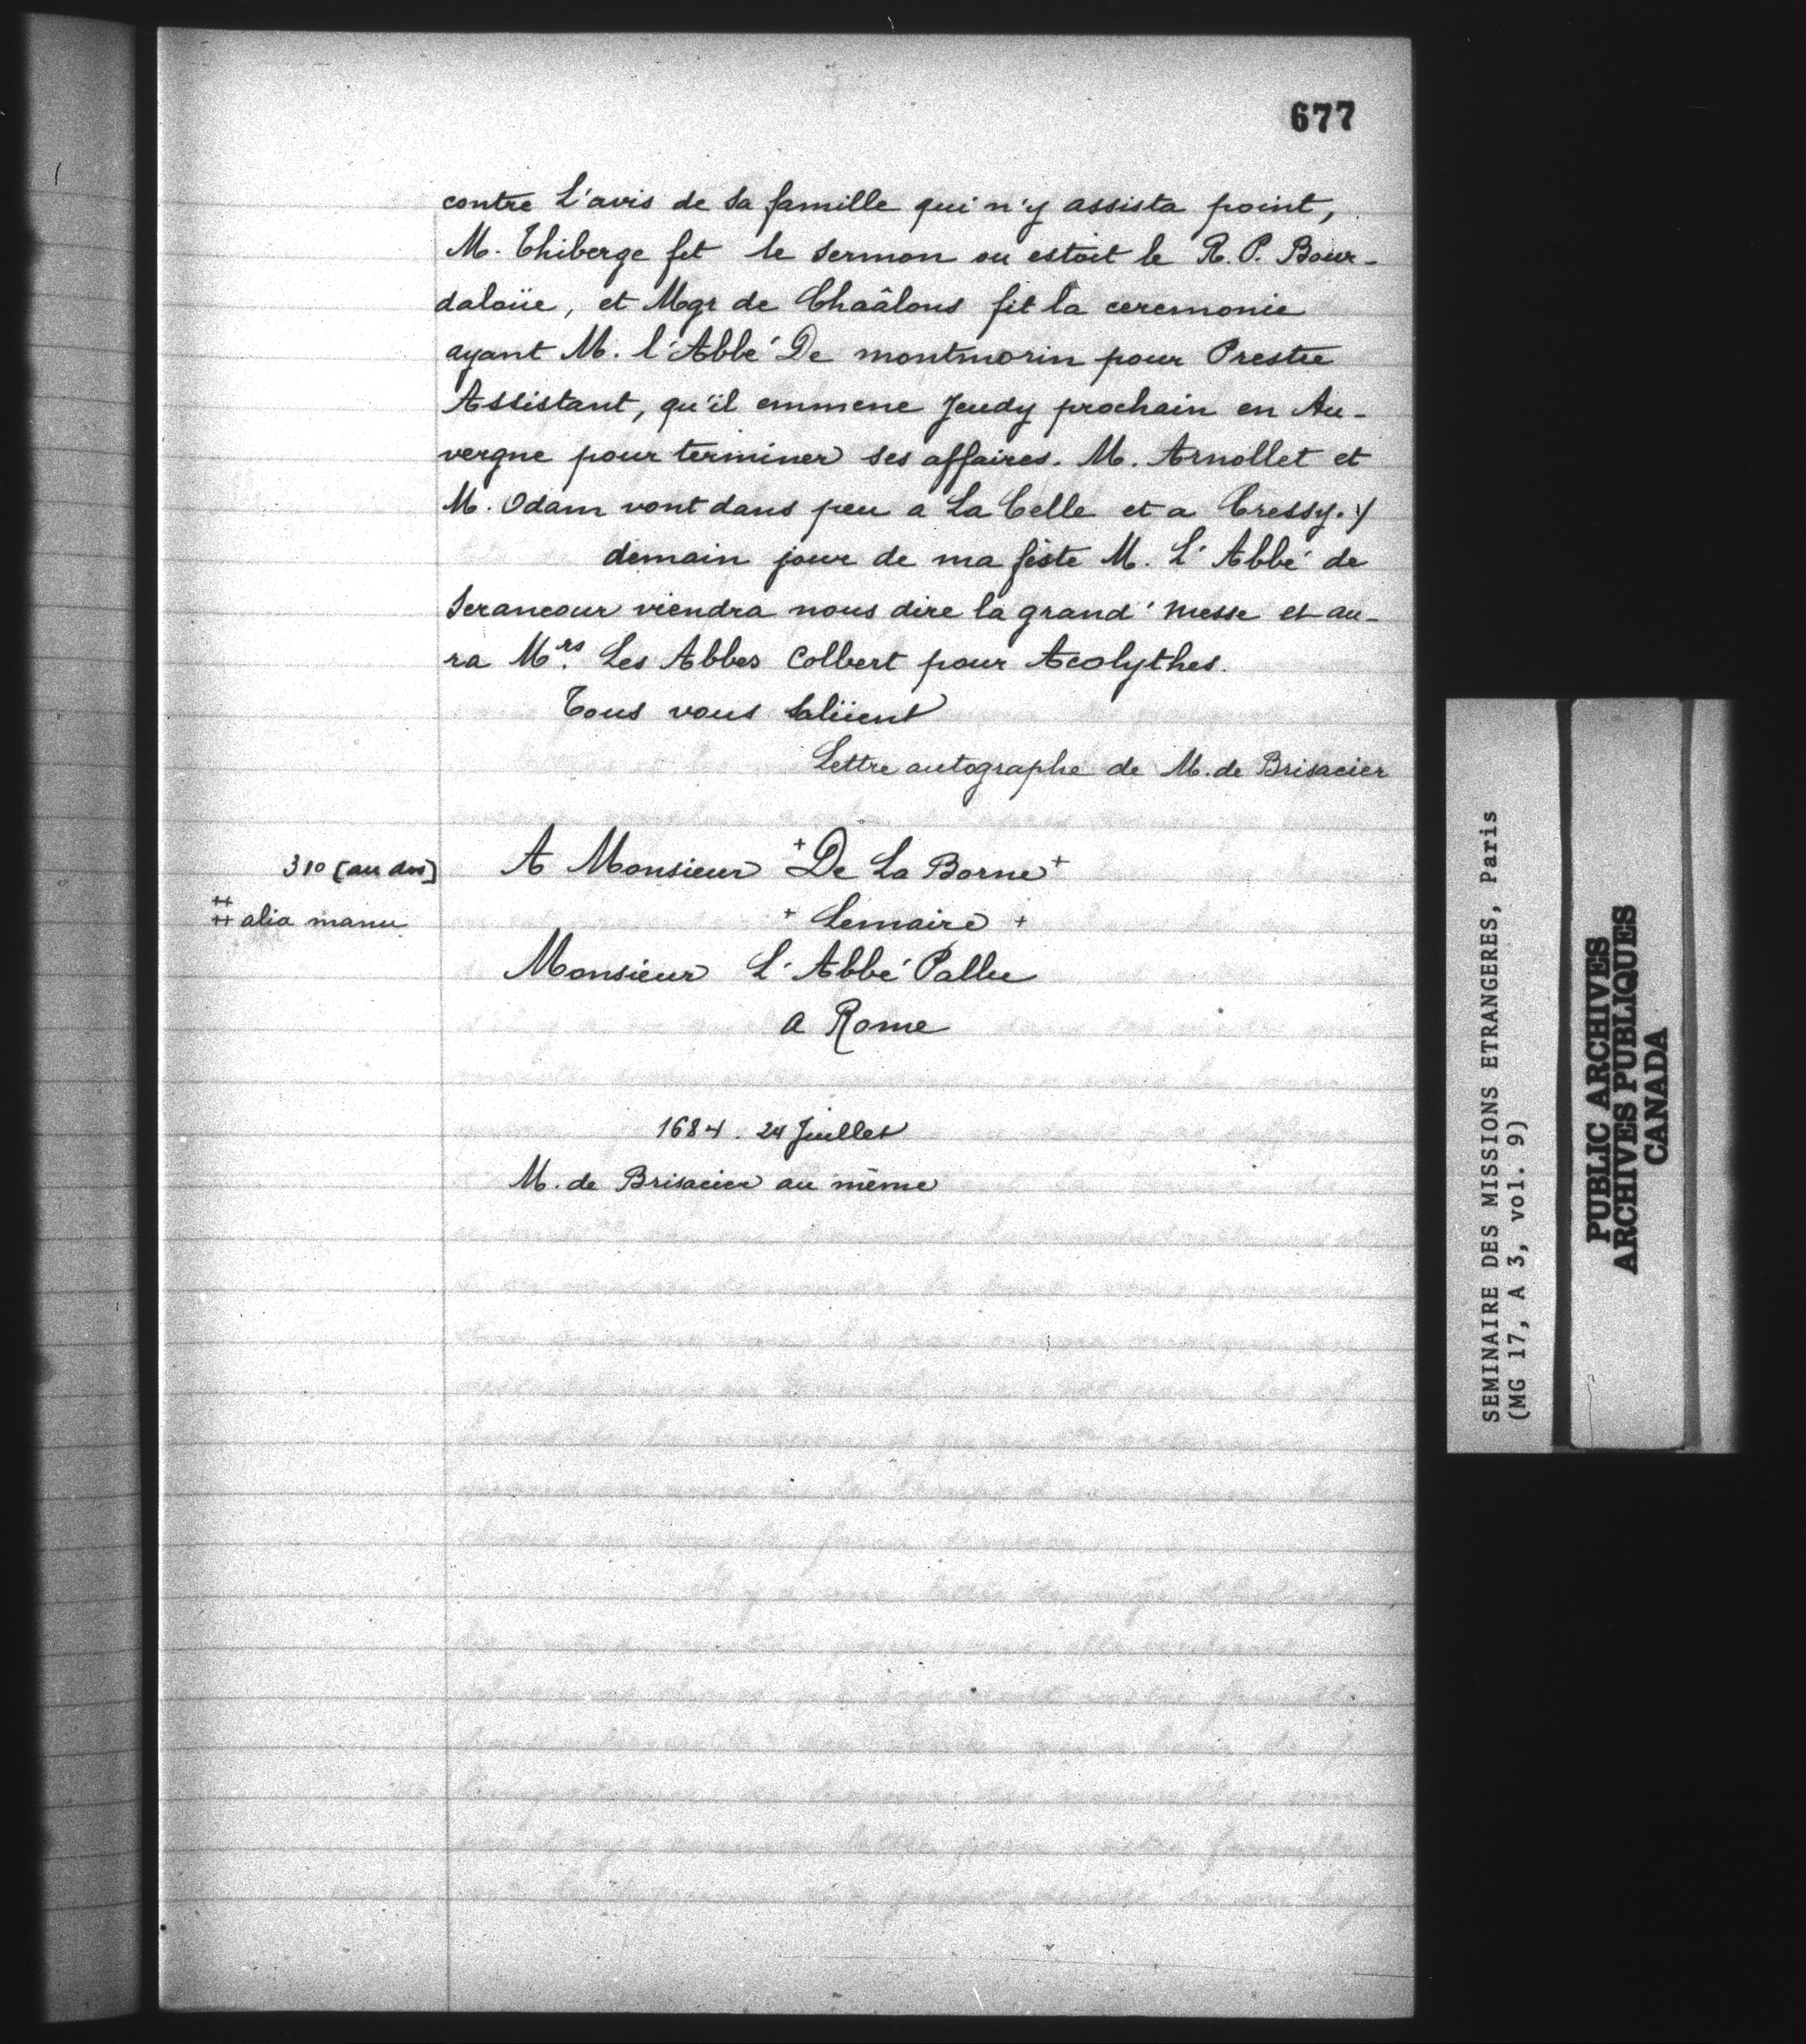 677
contre L'avis de sa famille qui n'y assista point,
M. Thiberge fit le sermon ou estoit le R. P. Bour-
daloüe, et Mgr de Chaâlons fit la ceremonie
ayant M. l'Abbé De montmorin pour Prestre
Assistant, qu'il emmene Jeudy prochain en Au-
vergne pour terminer ses affaires. M. Arnollet et
M. Odam vont dans peu a La Celle et a Cressy. y
demain jour de ma feste M. L'Abbé de
Serancour viendra nous dire la grand' messe et au-
ra Mrs. Les Abbes Colbert pour Acolythes.
Tous vous salüent
Lettre autographe de M. de Brisacier
310 [au dos] A Monsieur + De La Borne +
++ alia manu + Lemaire +
Monsieur L'Abbé Pallu
a Rome
1684. 24 Juillet
M. de Brisacier au même
SEMINAIRE DES MISSIONS ETRANGERES, Paris
(MG 17, A 3, vol. 9)
PUBLIC ARCHIVES
ARCHIVES PUBLIQUES
CANADA